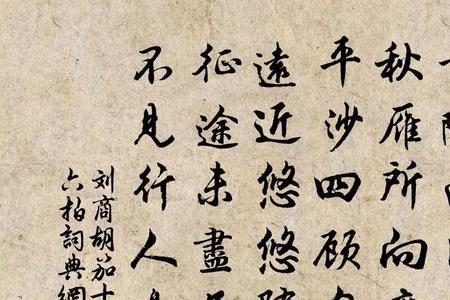 秋雁所向
平沙四顾
遠近悠悠
征途未盡
不見行人
刘商胡笳十
六拍詞典網